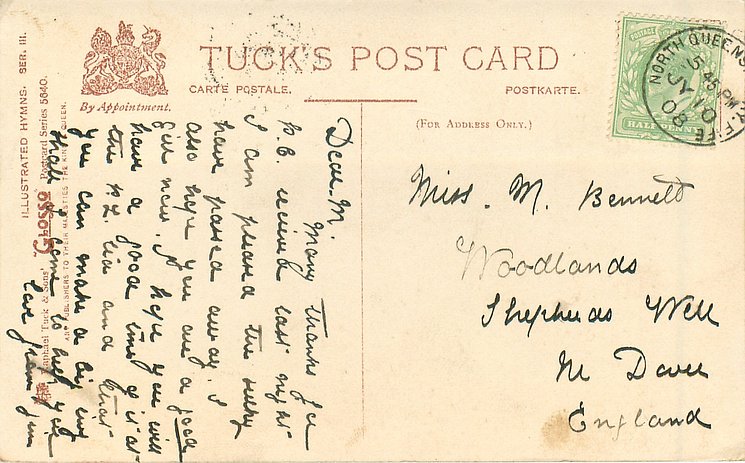 TUCK'S POST CARD
CARTE POSTALE.
POSTKARTE.
By Appointment.
(FOR ADDRESS ONLY.)
POSTAGE
HALFPENNY
NORTH QUEENS
5 45 PM
JY 10
08
FIFE
Miss. M. Bennett
Woodlands
Shepherds Well
Nr Dover
England
Dear M.
Many thanks for
P.C. received last night
I am pleased the
have passed away. I
also hope you are a good
girl now. I hope you will
have a good time
the and that
you can make a big
shall come to help you
love from Jim
ILLUSTRATED HYMNS. SER. III.
Raphael Tuck & Sons' "GLOSSO" Postcard Series 5640.
ART PUBLISHERS TO THEIR MAJESTIES THE KING & QUEEN.